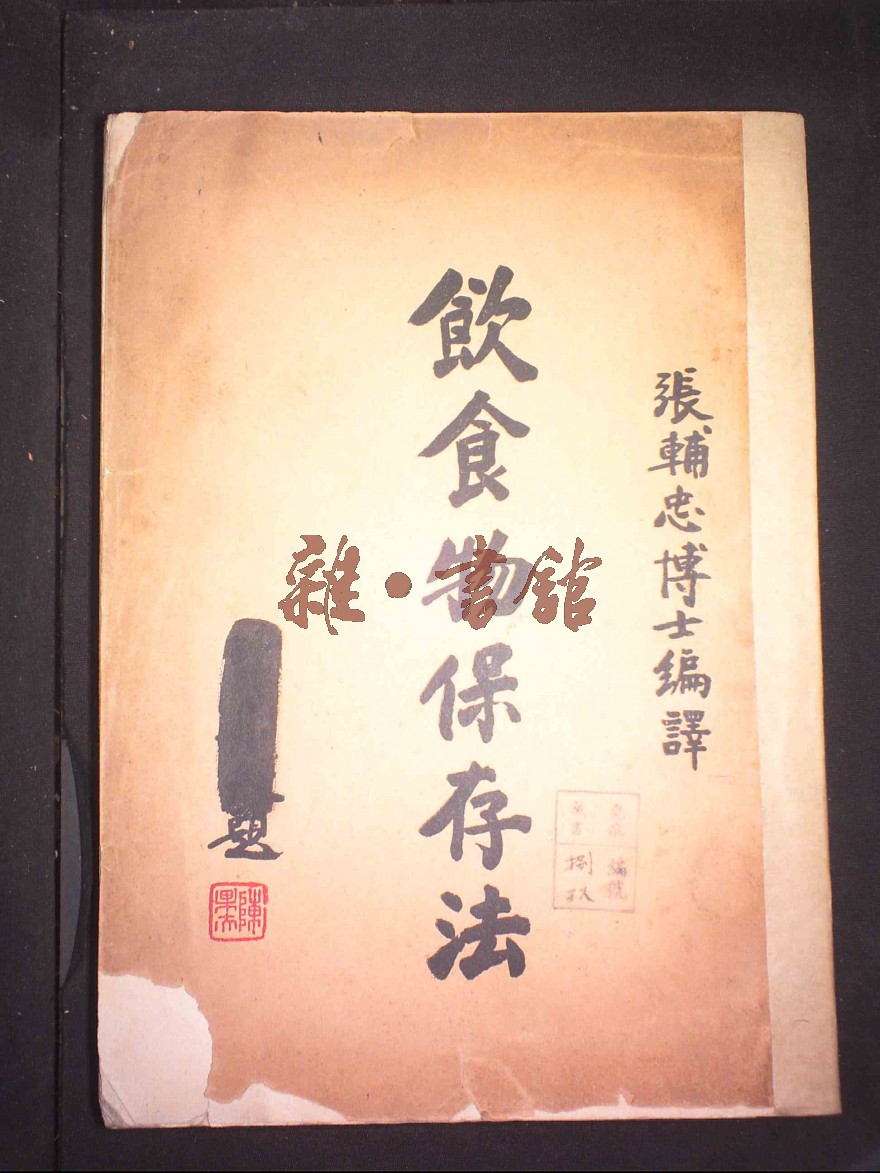 張輔忠博士編譯
飲食物保存法
題
陳果夫
雜·書館
編號
捌